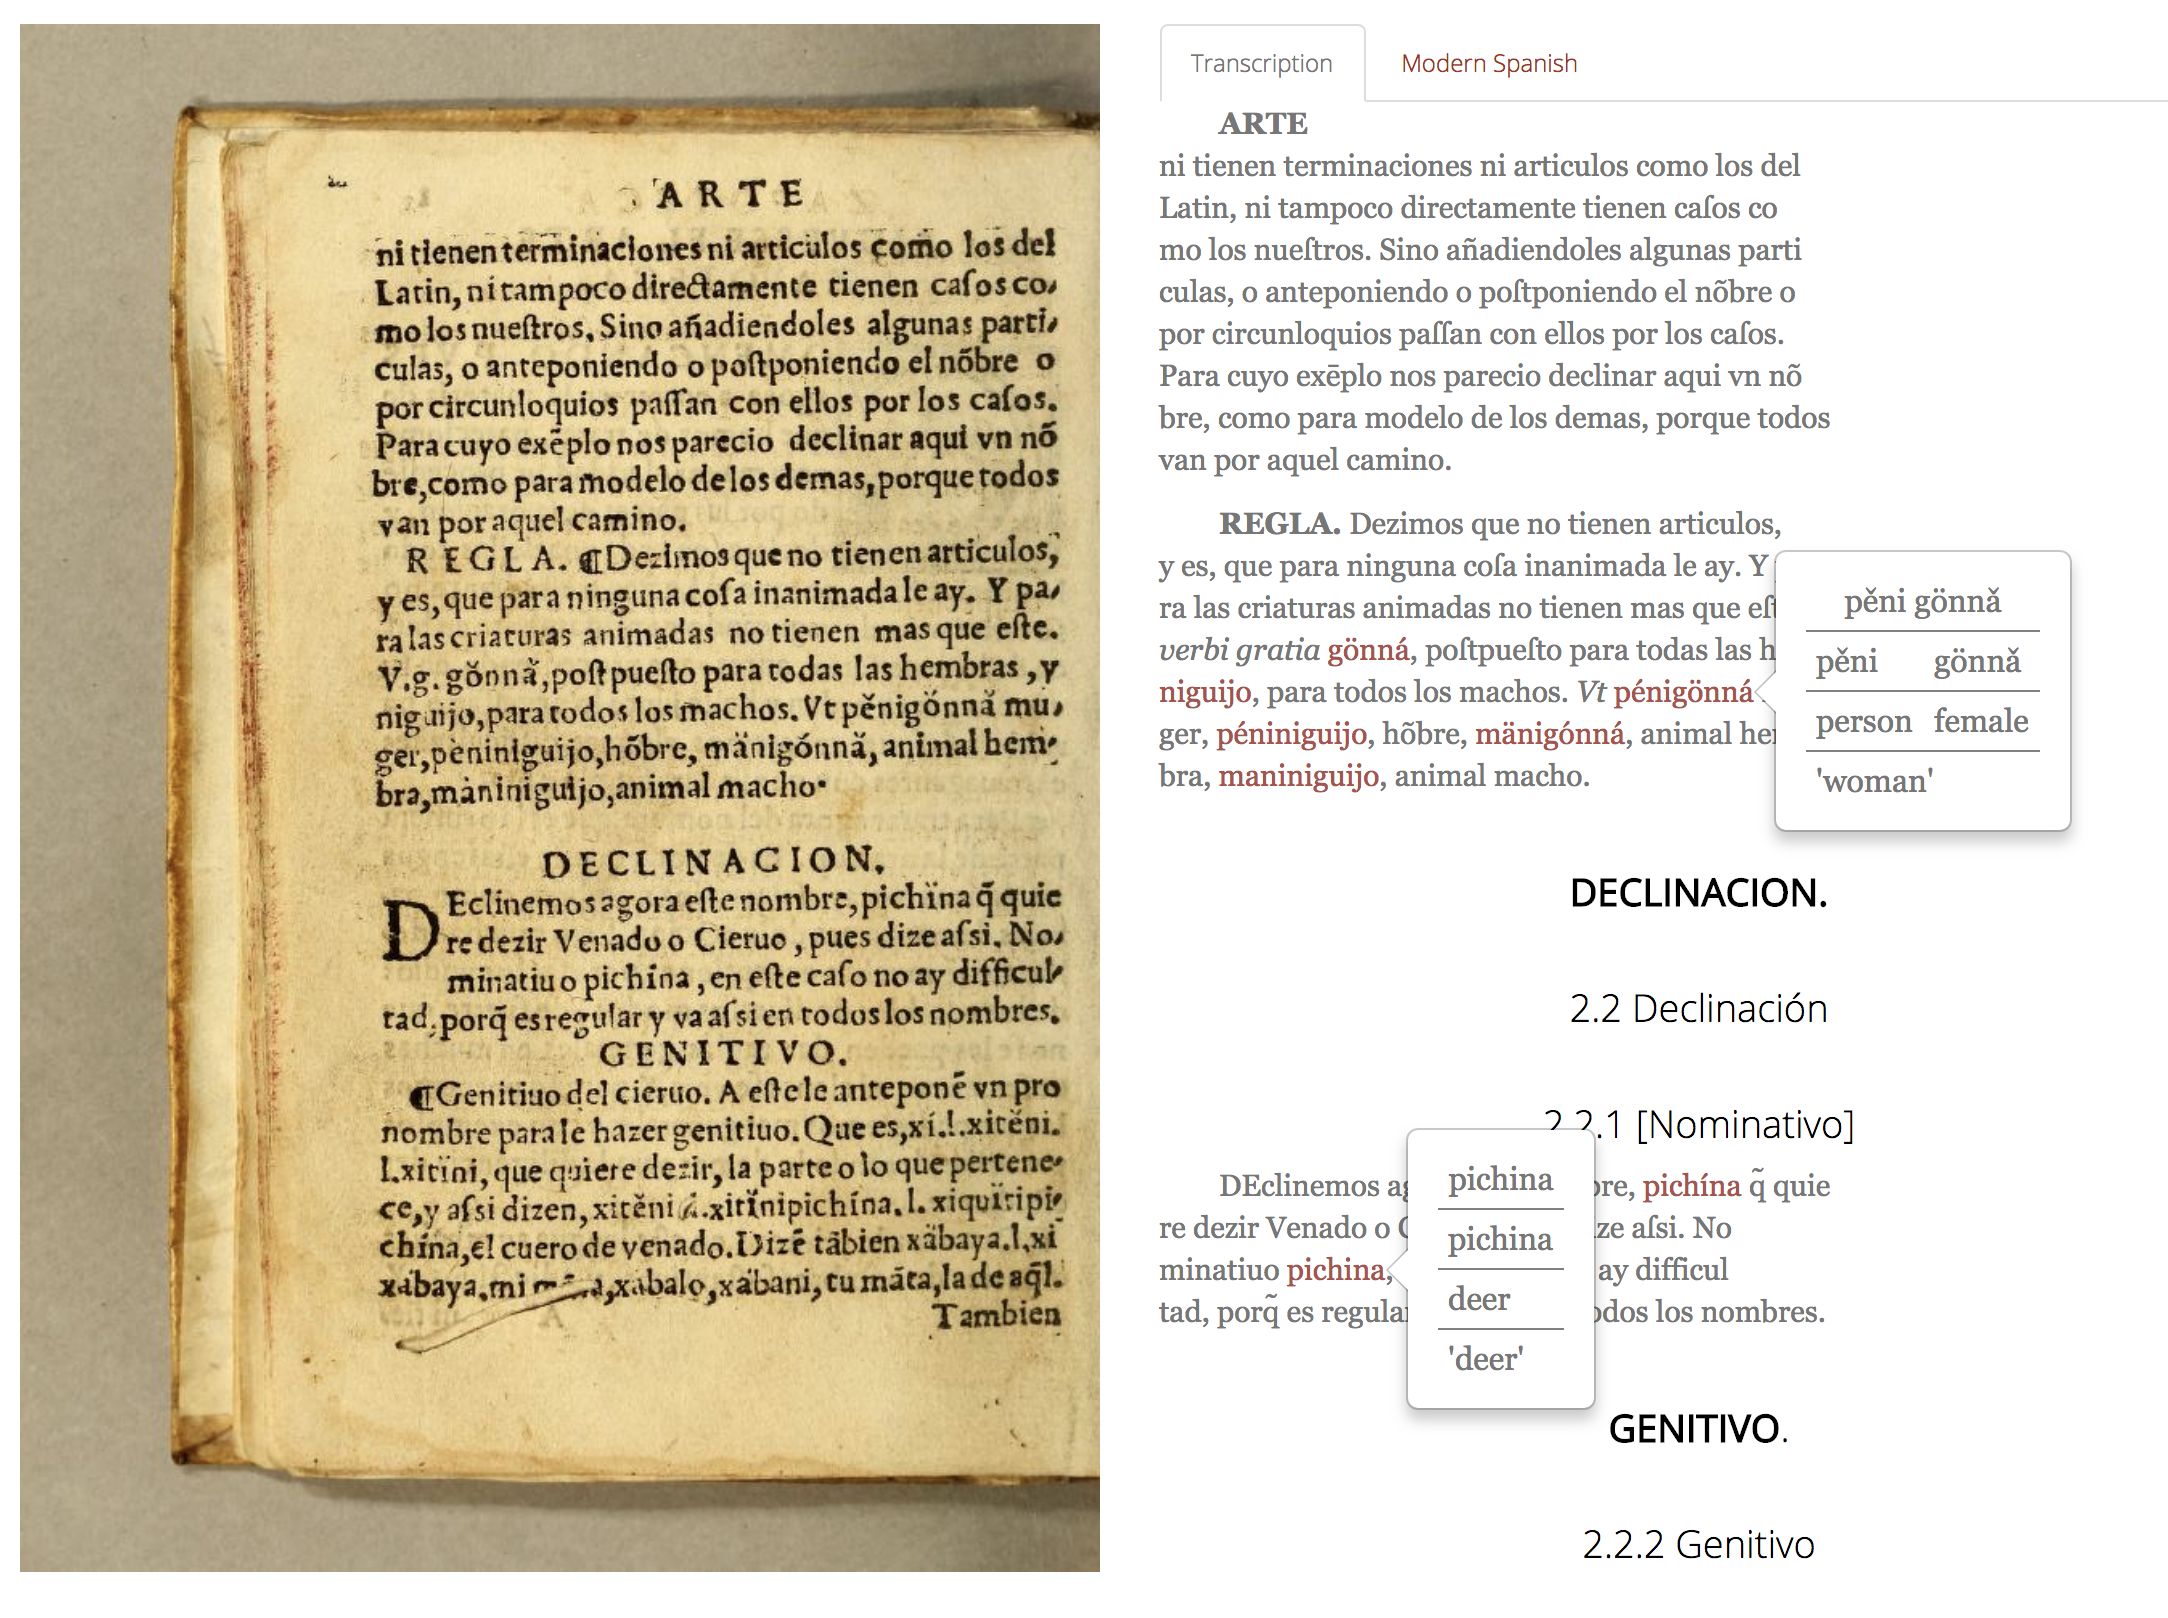 ARTE
ni tienen terminaciones ni articulos como los del
Latin, ni tampoco directamente tienen caſos co,
mo los nueſtros. Sino añadiendoles algunas parti,
culas, o anteponiendo o poſtponiendo el nõbre o
por circunloquios paſſan con ellos por los caſos.
Para cuyo exẽplo nos parecio declinar aqui vn nõ
bre, como para modelo de los demas, porque todos
van por aquel camino.
REGLA. ¶Dezimos que no tienen articulos,
y es, que para ninguna coſa inanimada le ay. Y pa,
ra las criaturas animadas no tienen mas que eſte.
V.g. gŏnnǎ, poſtpueſto para todas las hembras, y
niguijo, para todos los machos. Vt pěnigönnǎ mu,
ger, pèniniguijo, hõbre, mänigónnǎ, animal hem-
bra, màniniguijo, animal macho.
DECLINACION.
DEclinemos agora eſte nombre, pichïna q̃ quie
re dezir Venado o Cieruo, pues dize aſsi. No,
minatiuo pichína, en eſte caſo no ay difficul,
tad, porq̃ es regular y va aſsi en todos los nombres.
GENITIVO.
¶Genitiuo del cieruo. A eſte le anteponẽ vn pro
nombre para le hazer genitiuo. Que es, xí.l.xitěni.
l.xitïni, que quiere dezir, la parte o lo que pertene-
ce, y aſsi dizen, xitěni .xitǐnipichína. l. xiquitipi-
chína, el cuero de venado. Dizẽ tãbien xäbaya.l.xi
xabaya. mi xabalo, xäbani, tu mãta, la de aq̃l.
Tambien
Transcription
Modern Spanish
ARTE
ni tienen terminaciones ni articulos como los del
Latin, ni tampoco directamente tienen caſos co
mo los nueſtros. Sino añadiendoles algunas parti
culas, o anteponiendo o poſtponiendo el nõbre o
por circunloquios paſſan con ellos por los caſos.
Para cuyo exēplo nos parecio declinar aqui vn nõ
bre, como para modelo de los demas, porque todos
van por aquel camino.
REGLA. Dezimos que no tienen articulos,
y es, que para ninguna coſa inanimada le ay. Y
ra las criaturas animadas no tienen mas que eſt
verbi gratia gönná, poſtpueſto para todas las h
niguijo, para todos los machos. Vt pénigönná
ger, péniniguijo, hõbre, mänigónná, animal he
bra, maniniguijo, animal macho.
pěni gönnǎ
pěni gönnǎ
person female
'woman'
DECLINACION.
2.2 Declinación
2.2.1 [Nominativo]
DEclinemos ag bre, pichína q̃ quie
re dezir Venado o ze aſsi. No
minatiuo pichina, ay difficul
tad, porq̃ es regular odos los nombres.
pichina
pichina
deer
'deer'
GENITIVO.
2.2.2 Genitivo